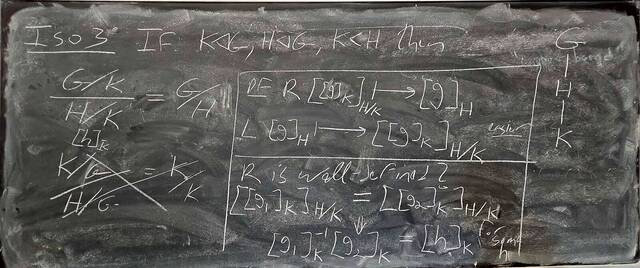 Iso 3 IF K◁G, H◁G, K<H then
G/K / H/K = G/H
[h]_K
K/G / H/G = K/K
PF R [[g]_K]_{H/K} ⟼ [g]_H
L [g]_H ⟼ [[g]_K]_{H/K}
R is well-defined?
[[g₁]_K]_{H/K} = [[g₂]_K]_{H/K}
⇓
[g₁]_K^{-1} [g₂]_K = [h]_K some h
G
|
H
|
K